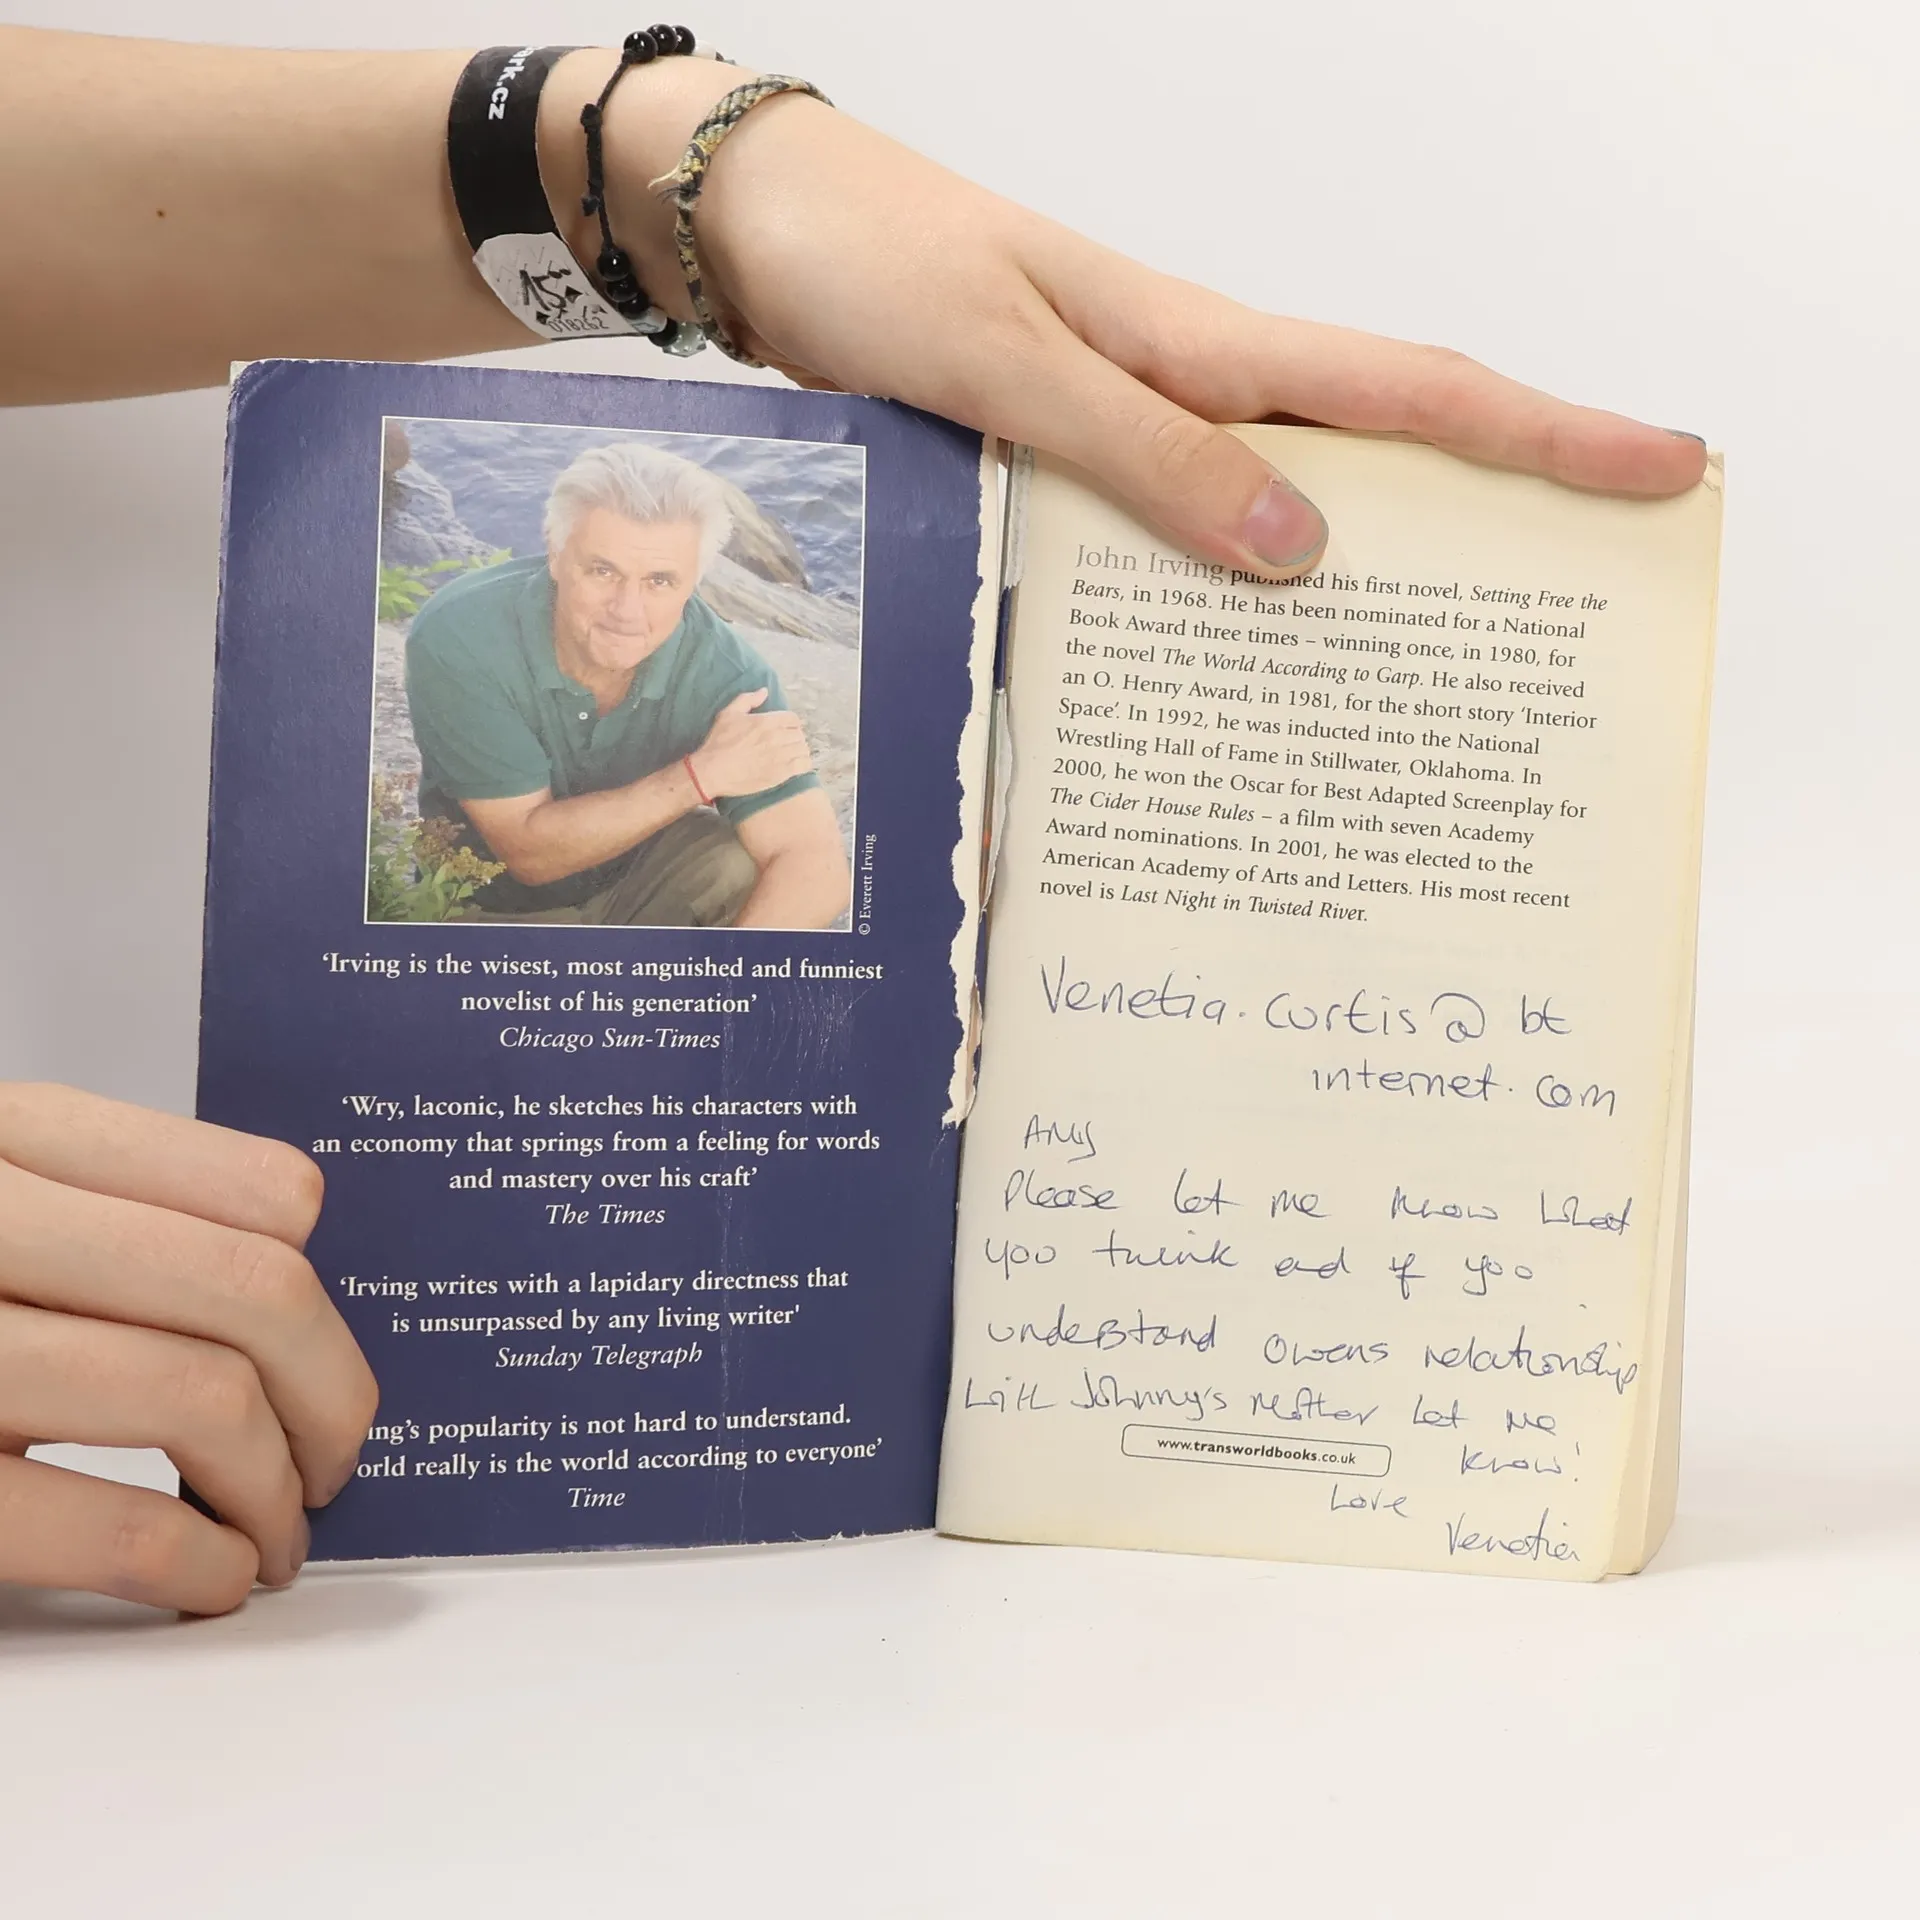 ark.cz
15
018262
© Everett Irving
'Irving is the wisest, most anguished and funniest
novelist of his generation'
Chicago Sun-Times
'Wry, laconic, he sketches his characters with
an economy that springs from a feeling for words
and mastery over his craft'
The Times
'Irving writes with a lapidary directness that
is unsurpassed by any living writer'
Sunday Telegraph
ing's popularity is not hard to understand.
orld really is the world according to everyone'
Time
John Irving published his first novel, Setting Free the
Bears, in 1968. He has been nominated for a National
Book Award three times – winning once, in 1980, for
the novel The World According to Garp. He also received
an O. Henry Award, in 1981, for the short story 'Interior
Space'. In 1992, he was inducted into the National
Wrestling Hall of Fame in Stillwater, Oklahoma. In
2000, he won the Oscar for Best Adapted Screenplay for
The Cider House Rules – a film with seven Academy
Award nominations. In 2001, he was elected to the
American Academy of Arts and Letters. His most recent
novel is Last Night in Twisted River.
Venetia.curtis@bt
internet.com
Amy
Please let me know what
you think and if you
understand Owens relationship
with Johnny's mother let me
know!
www.transworldbooks.co.uk
Love
Venetia